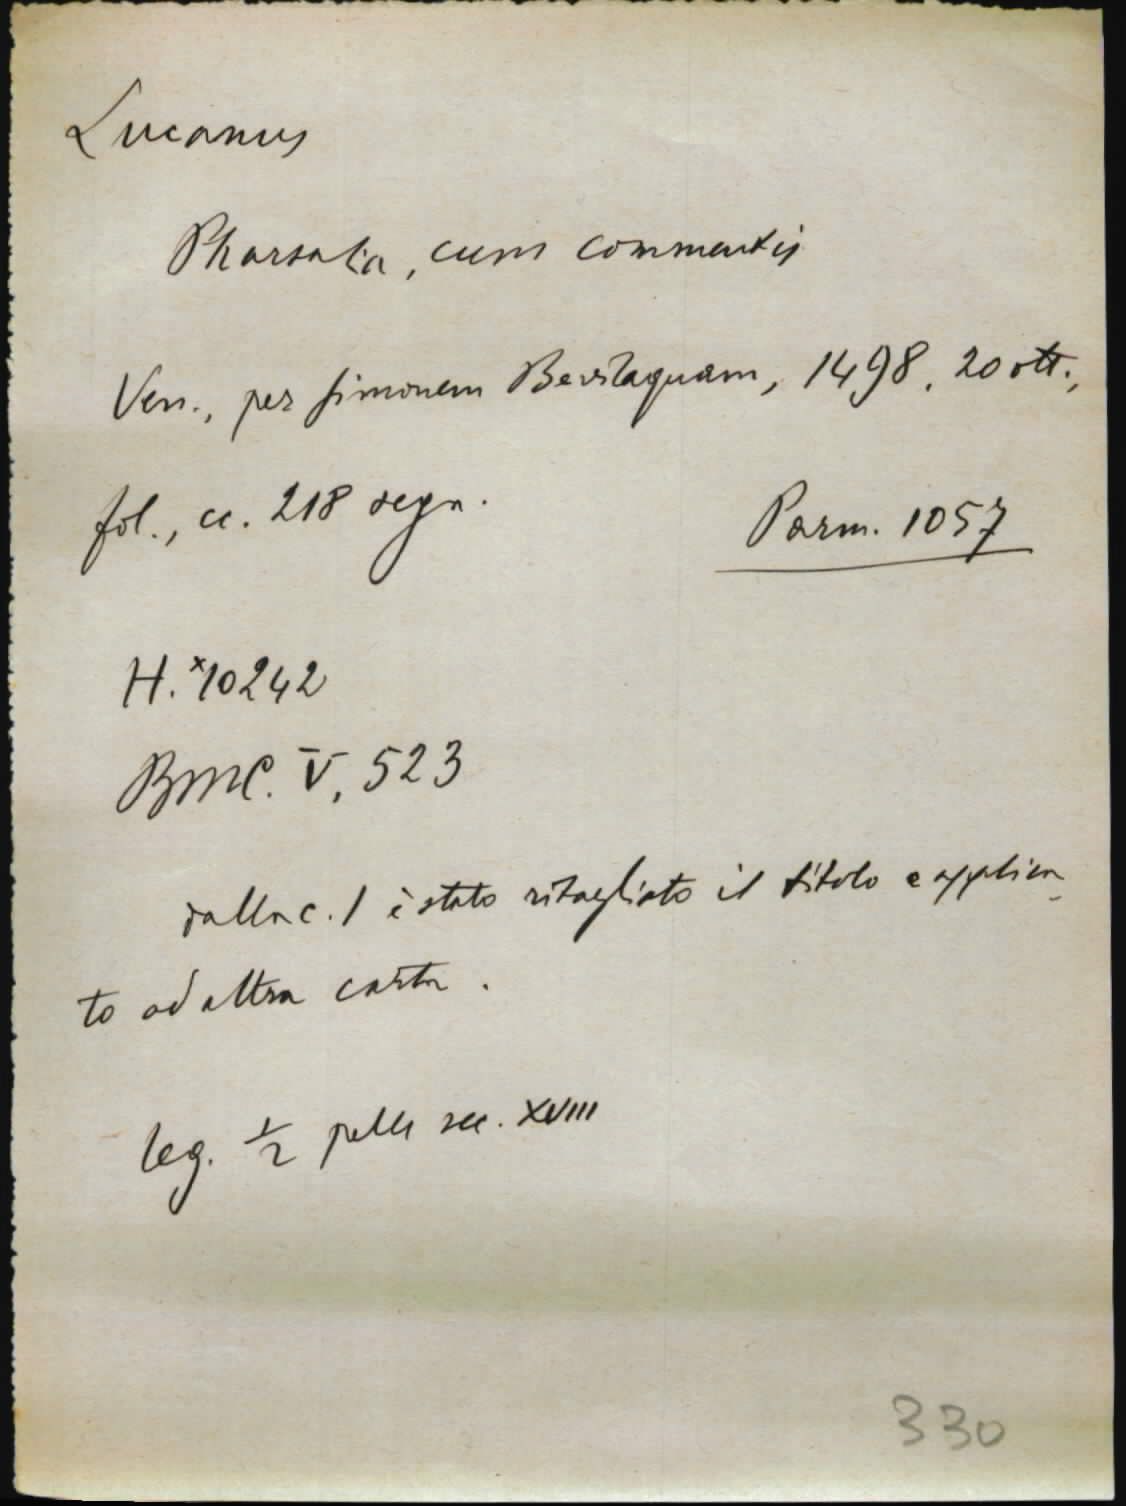 Lucanus
Pharsalia, cum commentis
Ven., per Simonem Bevilaquam, 1498, 20 ott.,
fol., cc. 218 segn.
Parm. 1057
H.*10242
BMC. V, 523
dalla c. 1 è stato ritagliato il titolo e applica-
to ad altra carta.
leg. 1/2 pelle sec. XVIII
330